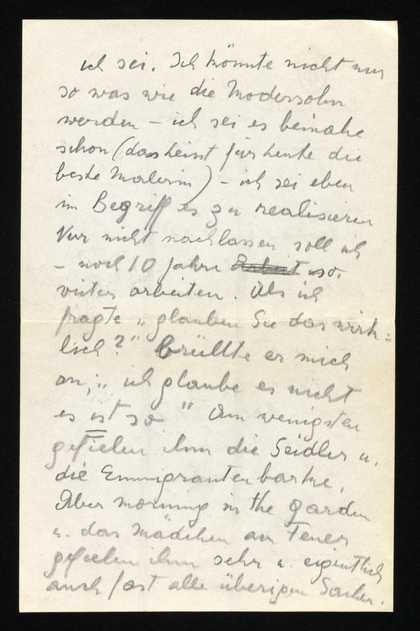 ich sei. Ich könnte nicht nur
so was wie die Modersohn
werden – ich sei es beinahe
schon (das heisst für heute die
beste Malerin) – ich sei eben
im Begriff es zu realisieren
Nur nicht nachlassen soll ich
– noch 10 Jahre Arbeit so
weiter arbeiten. Als ich
fragte „glauben Sie das wirk=
lich?" brüllte er mich
an, „ich glaube es nicht
es ist so" Am wenigsten
gefielen ihm die Seidler u.
die Emmigrantenbarke,
Aber morning in the garden
u. das Mädchen am Feuer
gefielen ihm sehr u. eigentlich
auch fast alle übrigen Sachen.